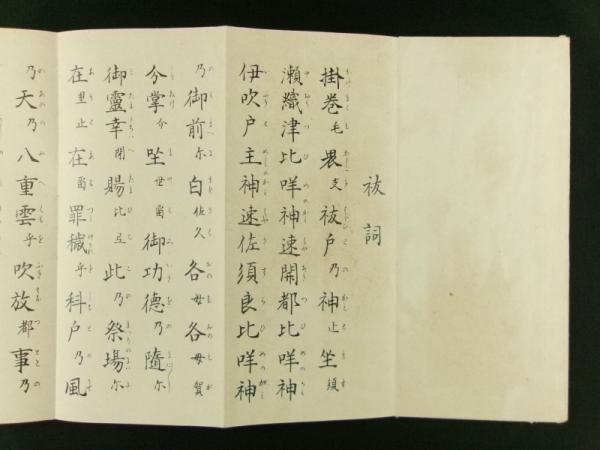 祓詞
掛巻毛畏支祓戸乃神止坐須
瀬織津比咩神速開都比咩神
伊吹戸主神速佐須良比咩神
乃御前尓白佐久各毋各毋賀
分掌分坐世留御功徳乃隨尓
御霊幸閇賜比弖此乃祭場尓
在里止在留罪穢乎科戸乃風
乃天乃八重雲乎吹放都事乃